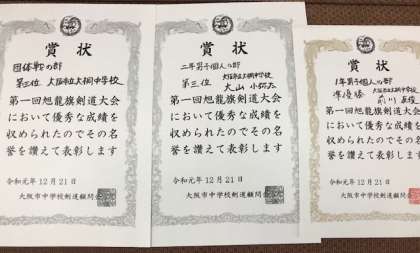 賞状
団体戦の部
第三位 大阪市立大桐中学校
第一回旭龍旗剣道大会
において優秀な成績を
収められたのでその名
誉を讃えて表彰します
令和元年12月21日
大阪市中学校剣道顧問会
賞状
二年男子個人の部
大阪市立大桐中学校
第三位 大山
第一回旭龍旗剣道大会
において優秀な成績を
収められたのでその名
誉を讃えて表彰します
令和元年12月21日
大阪市中学校剣道顧問会
賞状
1年男子個人の部
大阪市立大桐中学校
準優勝
第一回旭龍旗剣道大会
において優秀な成績を
収められたのでその名
誉を讃えて表彰します
令和元年12月21日
大阪市中学校剣道顧問会